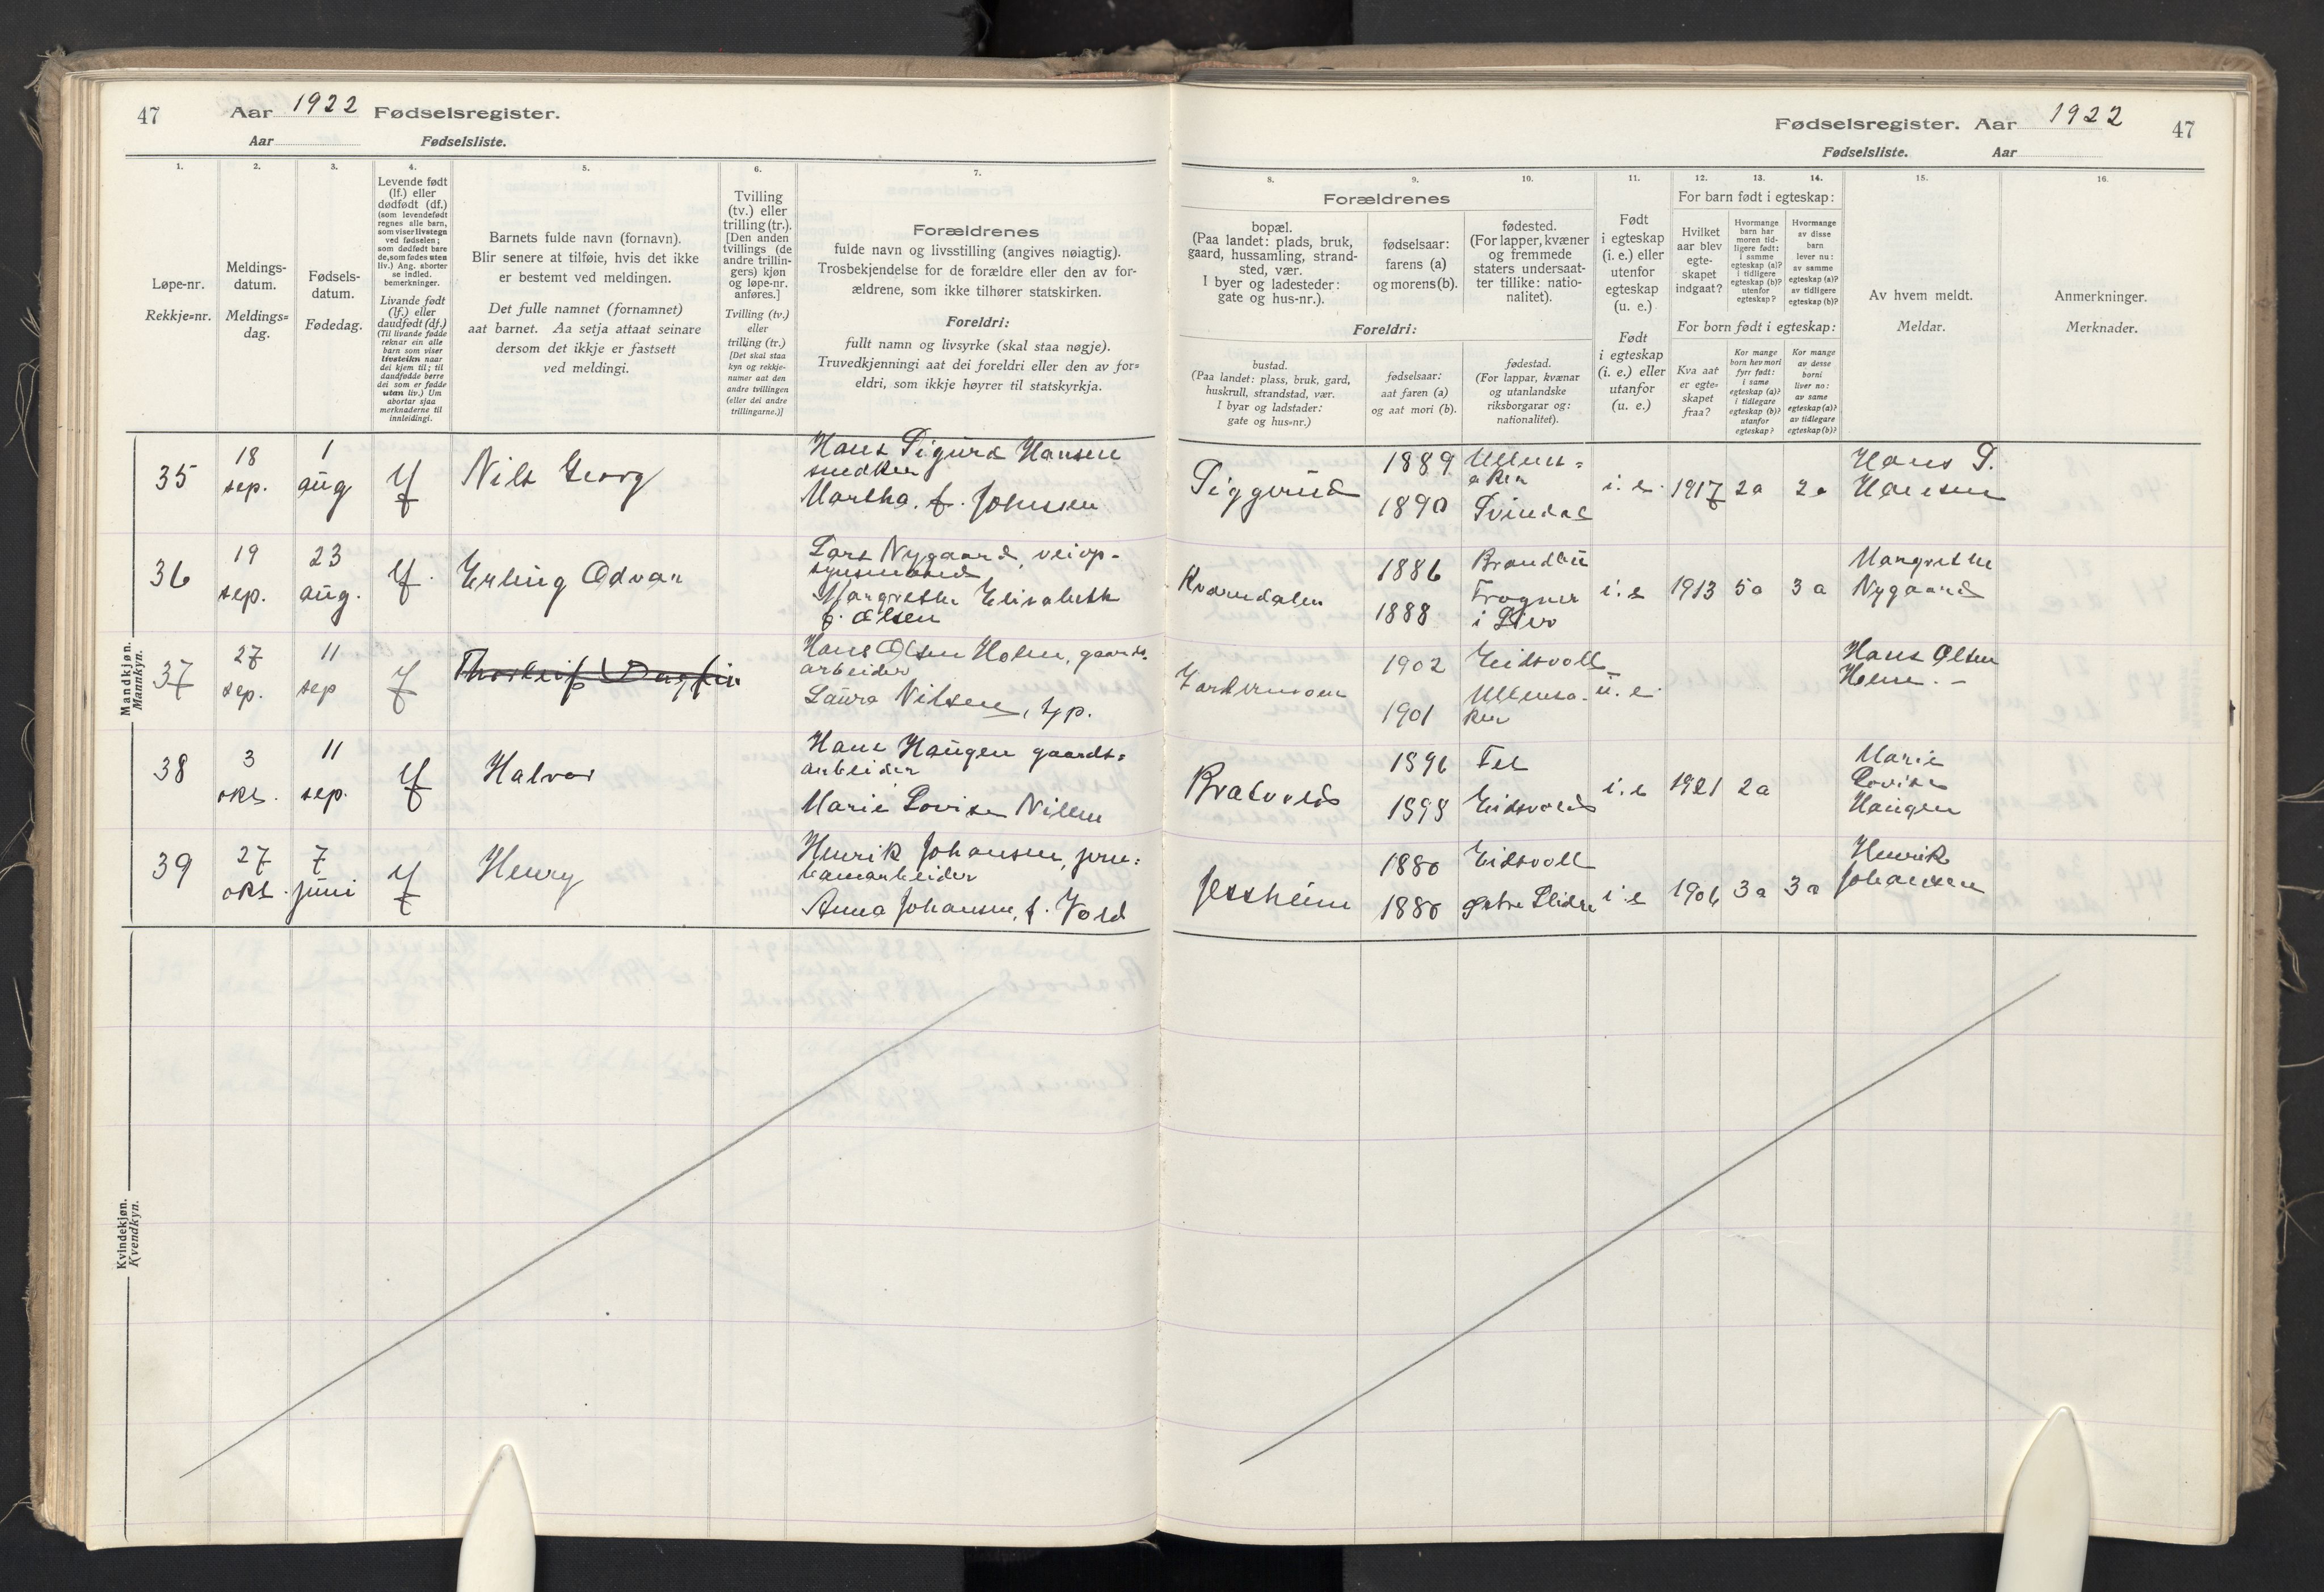 47
Aar 1922 Fødselsregister.
Aar Fødselsliste.
1.
2.
3.
4.
5.
6.
7.
Løpe-nr.
Rekkje=nr.
Meldings-
datum.
Meldings=
dag.
Fødsels-
datum.
Fødedag.
Levende født
(lf.) eller
dødfødt (df.)
(som levendefødt
regnes alle barn,
som viser livstegn
ved fødselen;
som dødfødt bare
de, som fødes uten
liv.) Ang. aborter
se indled.
bemerkninger.
Livande født
(lf.) eller
daudfødt (df.)
(Til livande fødde
reknar ein alle
barn som viser
livsteikn naar
dei kjem til; til
daudfødde berre
dei som er fødde
utan liv.) Um
abortar sjaa
merknaderne til
innleidingi.
Barnets fulde navn (fornavn).
Blir senere at tilføie, hvis det ikke
er bestemt ved meldingen.
Det fulle namnet (fornamnet)
aat barnet. Aa setja attaat seinare
dersom det ikkje er fastsett
ved meldingi.
Tvilling
(tv.) eller
trilling (tr.).
[Den anden
tvillings (de
andre trillin-
gers) kjøn
og løpe-nr.
anføres.]
Tvilling (tv.)
eller
trilling (tr.)
[Det skal staa
kyn og rekkje-
numer aat den
andre tvillingen
(eller dei andre
trillingarne.)]
Forældrenes
fulde navn og livsstilling (angives nøiagtig).
Trosbekjendelse for de forældre eller den av for-
ældrene, som ikke tilhører statskirken.
Foreldri:
fullt namn og livsyrke (skal staa nøgje).
Truvedkjenningi aat dei foreldri eller den av for=
eldri, som ikkje høyrer til statskyrkja.
Mandkjøn.
Mannkyn.
35
18
sep.
1
aug
lf
Nils Georg
Hans Sigurd Hansen
snedker
Martha. f. Johnsen
36
19
sep.
23
aug.
lf.
Erling Odvar
Lars Nygaard, veiop-
synsmand
Margrethe Elisabeth
f. Olsen
37
27
sep.
11
sep
lf
Thorleif Dagfin
Hans Olsen Holm, gaards.
arbeider
Laura Nilsen, tjp.
38
3
okt.
11
sep.
lf
Halvor
Hans Haugen gaards=
arbeider
Marie Lovise Nilsen
39
27
okt.
7
juni
lf
Henry
Henrik Johansen, jern=
banearbeider
Anna Johansen, f. Vold
Kvindekjøn.
Kvendkyn.
Fødselsregister. Aar 1922
47
Fødselsliste. Aar
8.
9.
10.
11.
12.
13.
14.
15.
16.
Forældrenes
bopæl.
(Paa landet: plads, bruk,
gaard, hussamling, strand-
sted, vær.
I byer og ladesteder:
gate og hus-nr.).
fødselsaar:
farens (a)
og morens (b).
fødested.
(For lapper, kvæner
og fremmede
staters undersaat-
ter tillike: natio-
nalitet).
Foreldri:
bustad.
(Paa landet: plass, bruk, gard,
huskrull, strandstad, vær.
I byar og ladstader:
gate og hus=nr.)
fødselsaar:
aat faren (a)
og aat mori (b).
fødestad.
(For lappar, kvænar
og utanlandske
riksborgarar og:
nationalitet).
Født
i egteskap
(i. e.) eller
utenfor
egteskap
(u. e.)
Født
i egteskap
(i. e.) eller
utanfor
(u. e.)
For barn født i egteskap:
Hvilket
aar blev
egte-
skapet
indgaat?
Hvormange
barn har
moren tid-
ligere født:
i samme
egteskap (a)?
i tidligere
egteskap (b)?
utenfor
egteskap?
Hvormange
av disse
barn
lever nu:
av samme
egteskap (a)?
av tidligere
egteskap (b)?
For born født i egteskap:
Kva aat
er egte-
skapet
fraa?
Kor mange
born hev mori
fyrr født:
i same
egteskap (a)?
i tidlegare
egteskap (b)?
utanfor
egteskap?
Kor mange
av desse
borni
liver no:
av same
egteskap (a)?
av tidlegare
egteskap (b)?
Av hvem meldt.
Meldar.
Anmerkninger.
Merknader.
Siggerud
1889
1890
Ullens=
aker
Svindal
i. e.
1917
2a
2a
Hans S.
Hansen
Kverndalen
1886
1888
Brandbu
Frogner
i Lier
i. e
1913
5a
3a
Margrethe
Nygaard
Gardermoen
1902
1901
Eidsvoll
Ullensa-
ker
u. e.
Hans Olsen
Holm. -
Bratvold
1896
1898
Fet
Eidsvold
i. e
1921
2a
Marie
Lovise
Haugen
Jessheim
1880
1880
Eidsvoll
Østre Slidre
i. e
1906
3a
3a
Henrik
Johansen